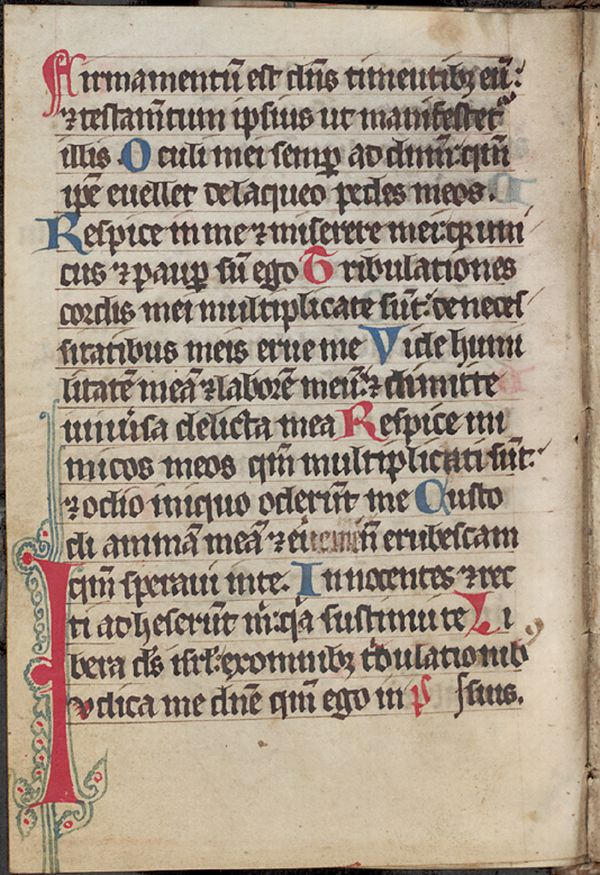 Firmamentū est dn̄s timentibꝫ eū:
⁊ testam̄tum ipsius ut manifestet͛
illis. Oculi mei semꝑ ad dnm̄: qm̄
ip̄e euellet de laqueo pedes meos.
Respice in me ⁊ miserere mei: qꝛ uni
cus ⁊ pauꝑ sū ego Tribulationes
cordis mei multiplicate sūt: de neces
sitatibus meis erue me Vide humi
litatē meā ⁊ laborē meū: ⁊ dimitte
uniu͛sa delicta mea Respice ini
micos meos qm̄ multiplicati sūt:
⁊ odio iniquo oderūt me Custo
di animā meā ⁊ n̄ erubescam
qm̄ speraui in te. Innocentes ⁊ rec
ti adheserūt m̄: qa̓ sustinui te Li
bera ds̄ isrl̄: ex omnibꝫ t̓bulationibꝰ
Iudica me dn̄e qm̄ ego in p̄s suis.